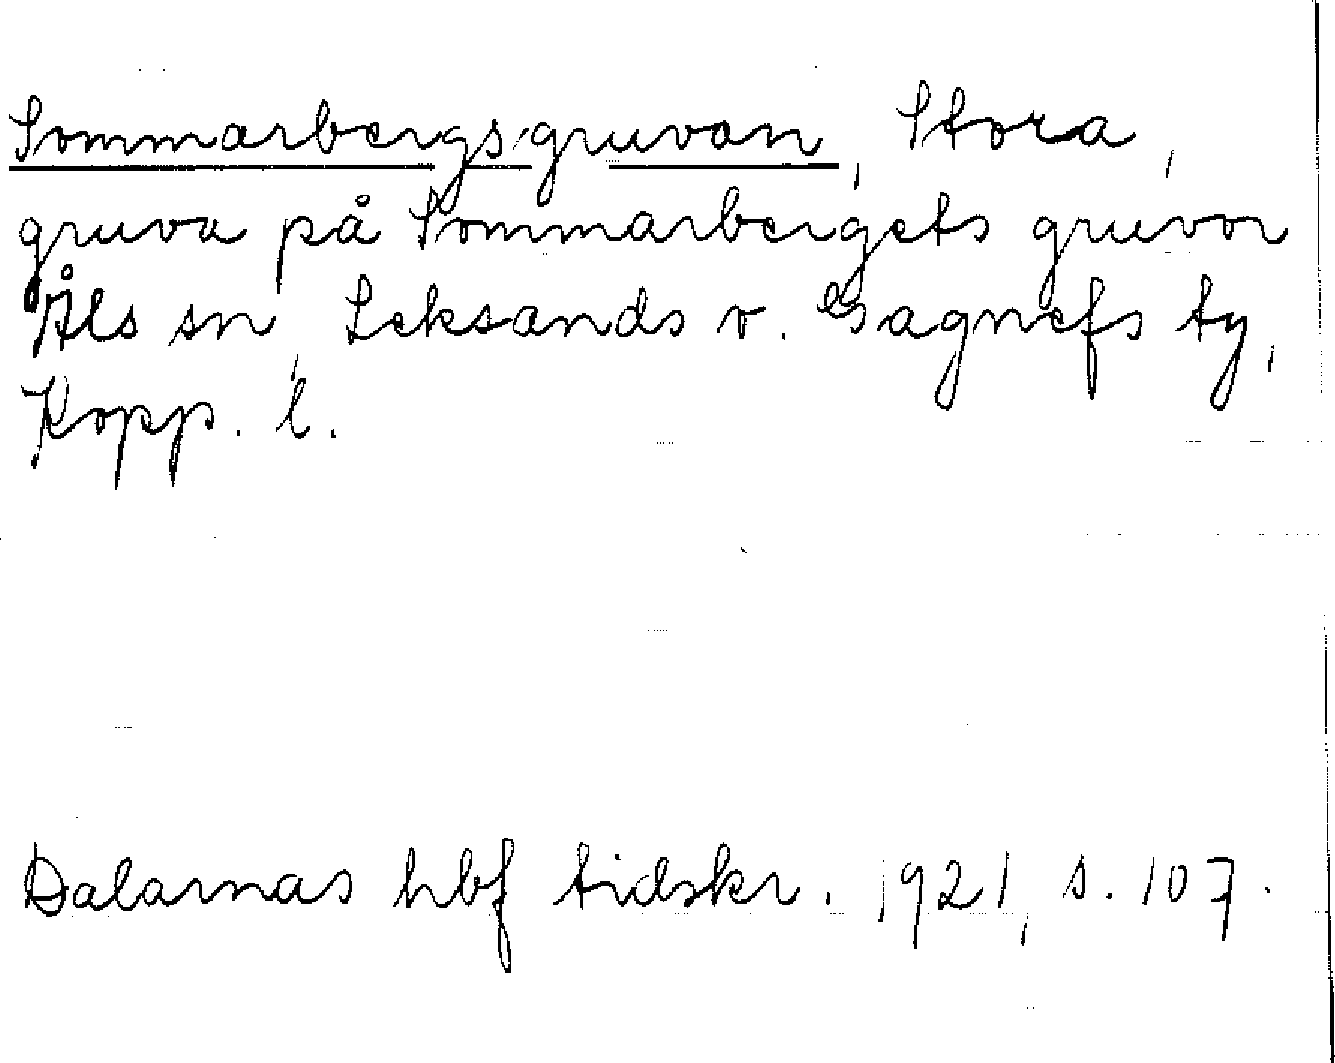 Sommarbergsgruvan, Stora,
gruva på Sommarbergets gruvor
Åls sn, Leksands o. Gagnefs tg,
Kopp. l.
Dalarnas hbf tidskr. 1921, s. 107.